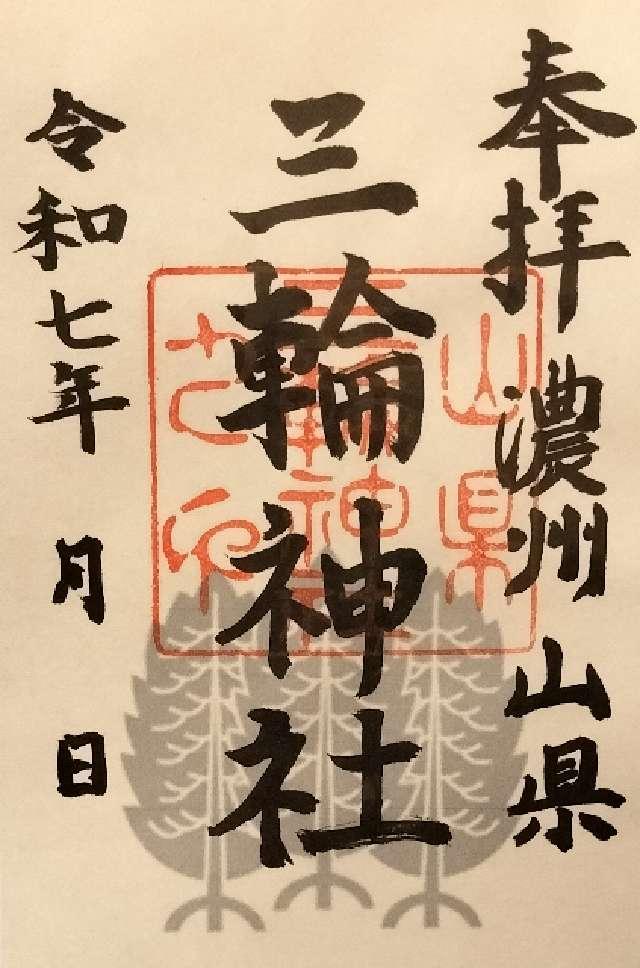 奉拝 濃州 山県
三輪神社
令和七年 月 日
山県
三輪神社
之印